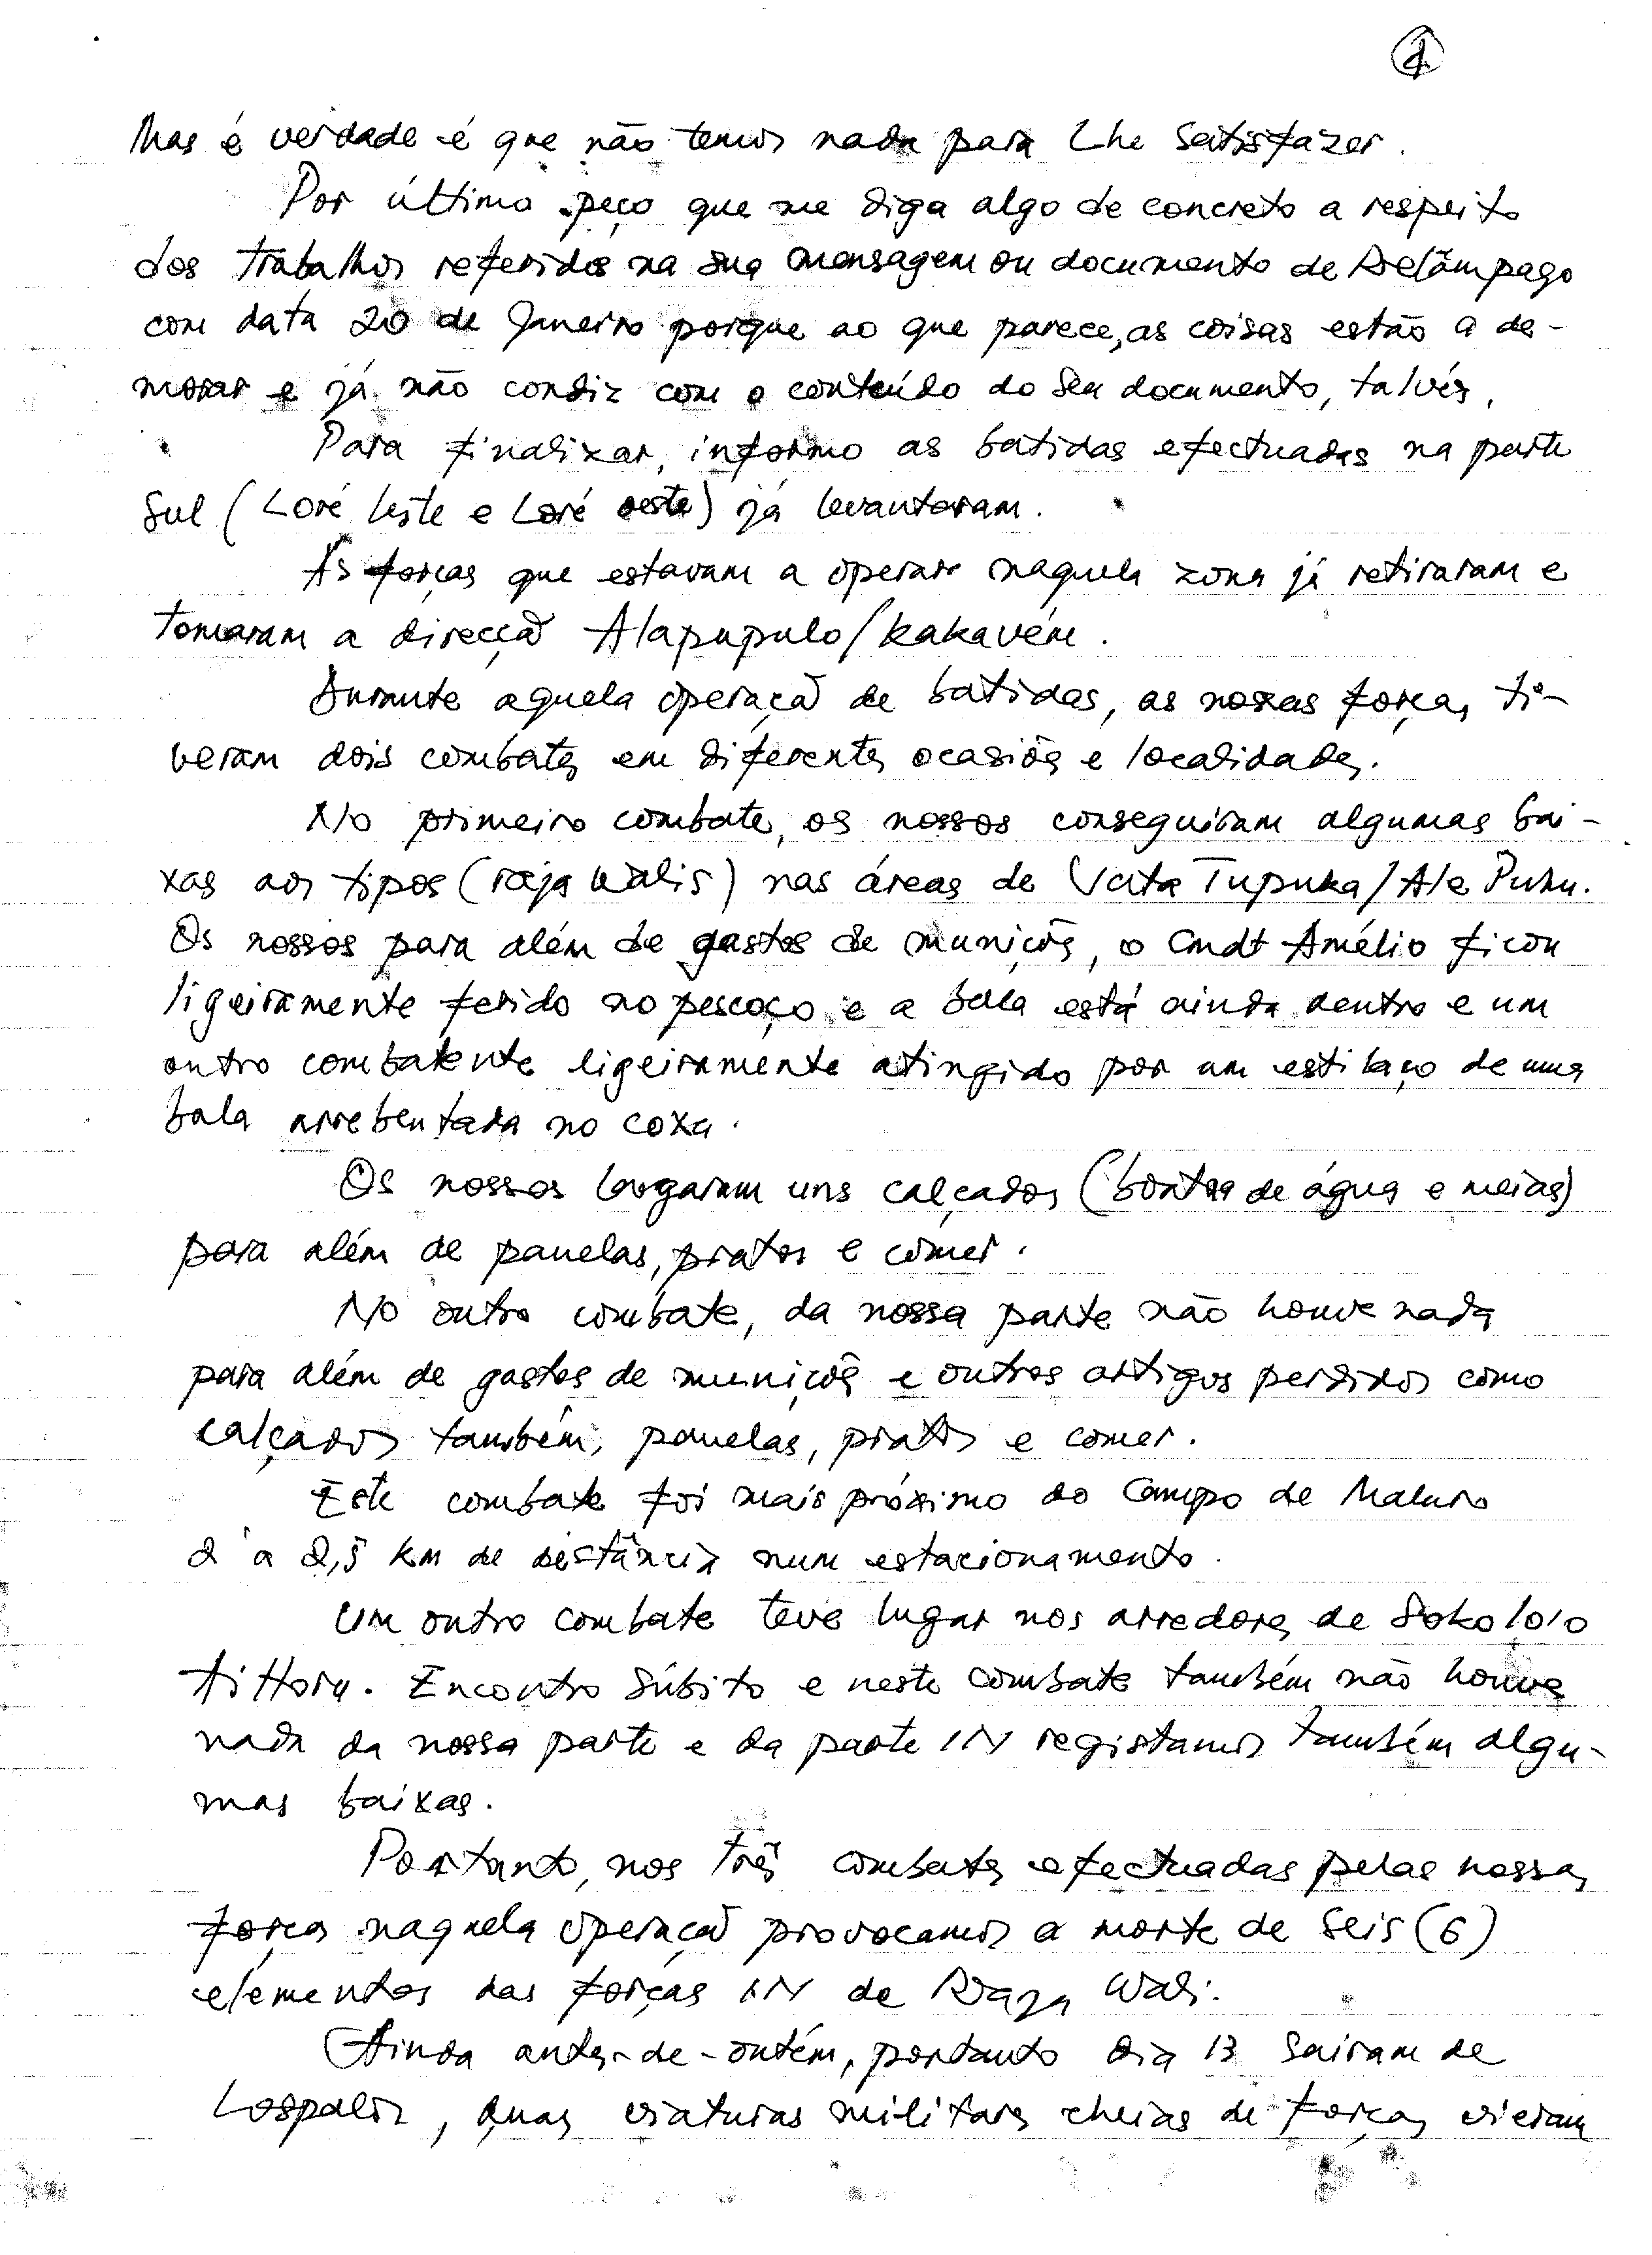 Mas é verdade é que não temos nada para Lhe satisfazer.
Por último peço que me diga algo de concreto a respeito
dos trabalhos referidos na sua mensagem ou documento de Relâmpago
com data 20 de Janeiro porque ao que parece, as coisas estão a de-
morar e já não condiz com o conteúdo do seu documento, talvés,
Para finalizar, informo as batidas efectuadas na parte
Sul (Loré leste e Loré oeste) já levantaram.
As forças que estavam a operar naquela zona já retiraram e
tomaram a direcção Alapupulo/kakavém.
Durante aquela operação de batidas, as nossas forças ti-
veram dois combates em diferentes ocasiões e localidades.
No primeiro combate, os nossos conseguiram algumas bai-
xas aos tipos (raja walis) nas áreas de Vata Tupuka/Ale Puhu.
Os nossos para além de gastos de munições, o Cmdt Amélio ficou
ligeiramente ferido no pescoço e a bala está ainda dentro e um
outro combatente ligeiramente atingido por um estilaço de uma
bala arrebentada no coxa.
Os nossos largaram uns calçados (bontas de água e meias)
para além de panelas, pratos e comer.
No outro combate, da nossa parte não houve nada
para além de gastos de munições e outros artigos perdidos como
calçados também, panelas, pratos e comer.
Este combate foi mais próximo do Campo de Maluro
2 a 2,5 km de distância num estacionamento.
Um outro combate teve lugar nos arredores de Sokololo
Tittoru. Encontro súbito e neste combate também não houve
nada da nossa parte e da parte IN registamos também algu-
mas baixas.
Portanto, nos três combates efectuadas pelas nossas
forças naquela operação provocamos a morte de seis (6)
elementos das forças IN de Raja Wali.
Ainda antes-de-ontém, portanto dia 13 sairam de
Lospalos, duas viaturas militares cheias de forças vieram